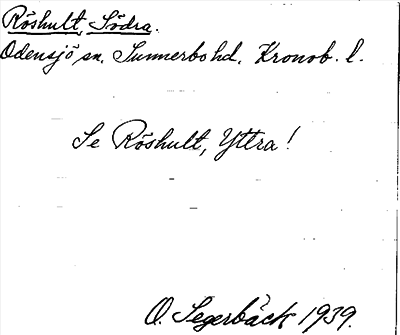 Röshult, Södra.
Odensjö sn. Sunnerbo hd. Kronob. l.
Se Röshult, Yttra!
O. Segerbäck 1939.